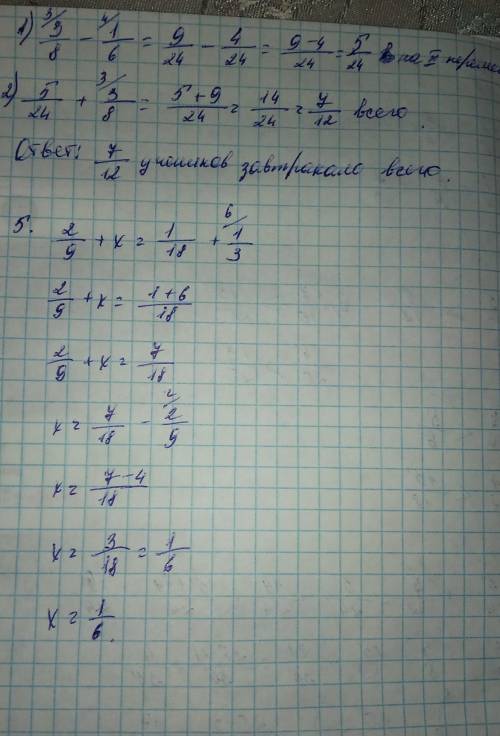 1) 3/ 3/8 - 4/ 1/6 = 9/24 - 4/24 = (9-4)/24 = 5/24 на II
2) 5/24 + 3/ 3/8 = (5+9)/24 = 14/24 = 7/12 всего.
Ответ: 7/12 учеников завтракало всего.
5. 2/9 + x = 1/18 + 6/ 1/3
2/9 + x = (1+6)/18
2/9 + x = 7/18
x = 7/18 - 2/ 2/9
x = (7-4)/18
x = 3/18 = 1/6
x = 1/6.